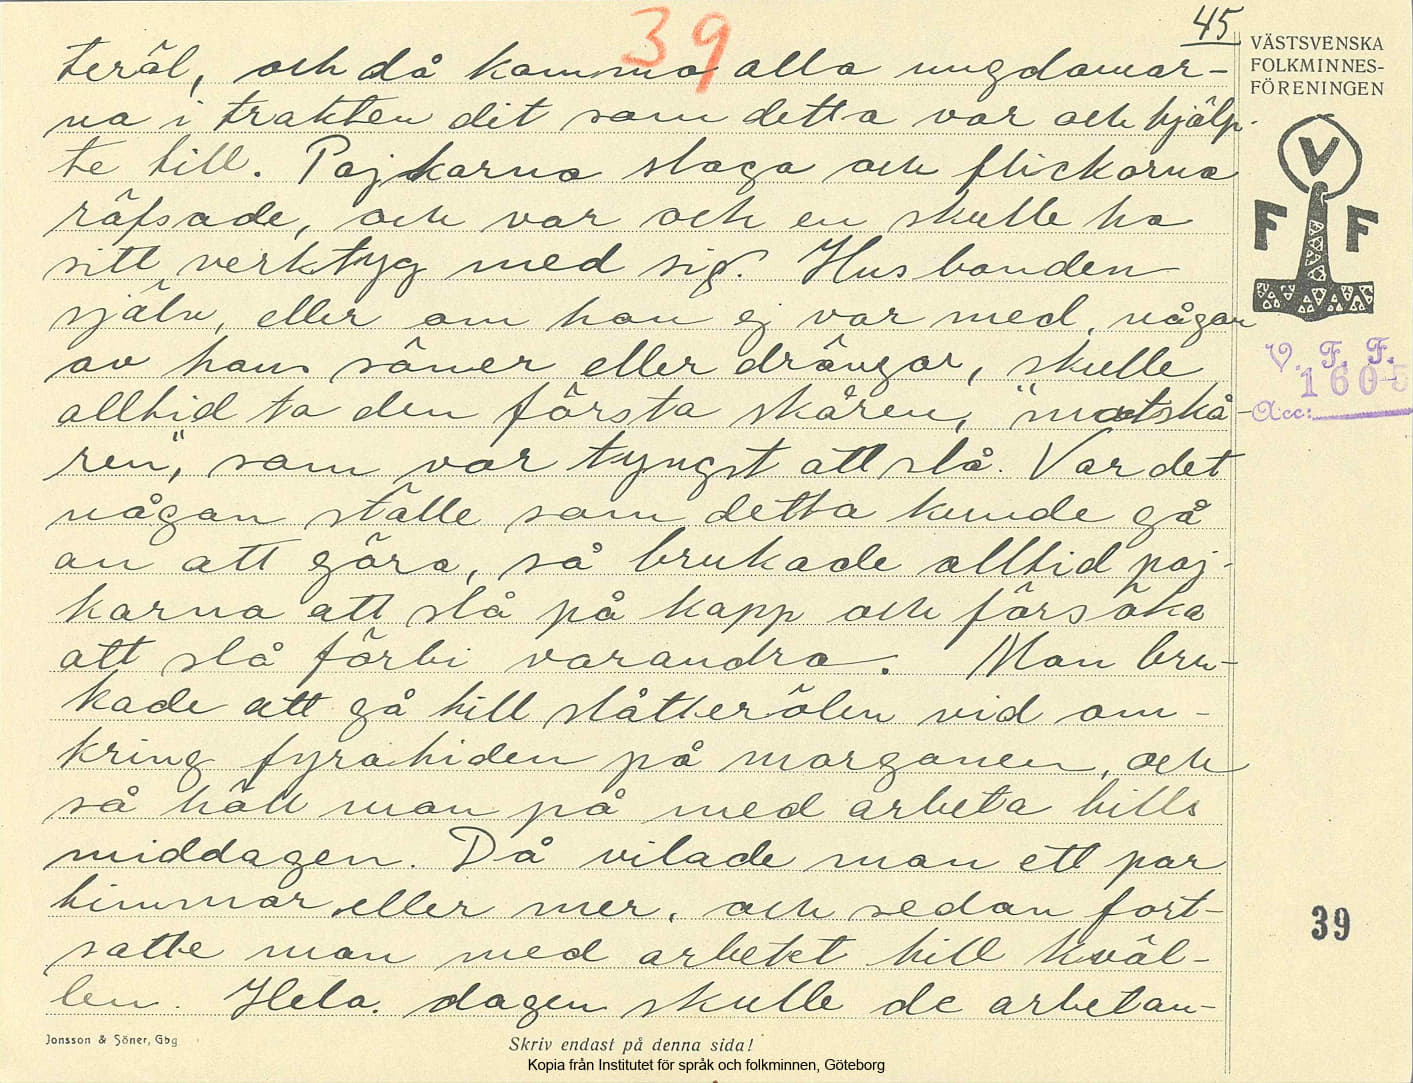 39
45
VÄSTSVENSKA
FOLKMINNES-
FÖRENINGEN
teräl, och då kommo alla ungdomar-
na i trakten dit som detta var och hjälp-
te till. Pojkarna sloga och flickorna
räfsade, och var och en skulle ha
sitt verktyg med sig. Husbonden
själv, eller om han ej var med, någon
av hans söner eller drängar, skulle
alltid ta den första skåren, "matskå-
ren", som var tyngst att slå. Var det
någon ställe som detta kunde gå
an att göra, så brukade alltid poj-
karna att slå på kapp och försöka
att slå förbi varandra. Man bru-
kade att gå till slåtterölen vid om-
kring fyratiden på morganen, och
så höll man på med arbeta tills
middagen. Då vilade man ett par
timmar eller mer, och sedan fort-
satte man med arbetet till kväl-
len. Hela dagen skulle de arbetan-
V
F F
V. F. F.
1605
Acc:
39
Jonsson & Söner, Gbg
Skriv endast på denna sida!
Kopia från Institutet för språk och folkminnen, Göteborg